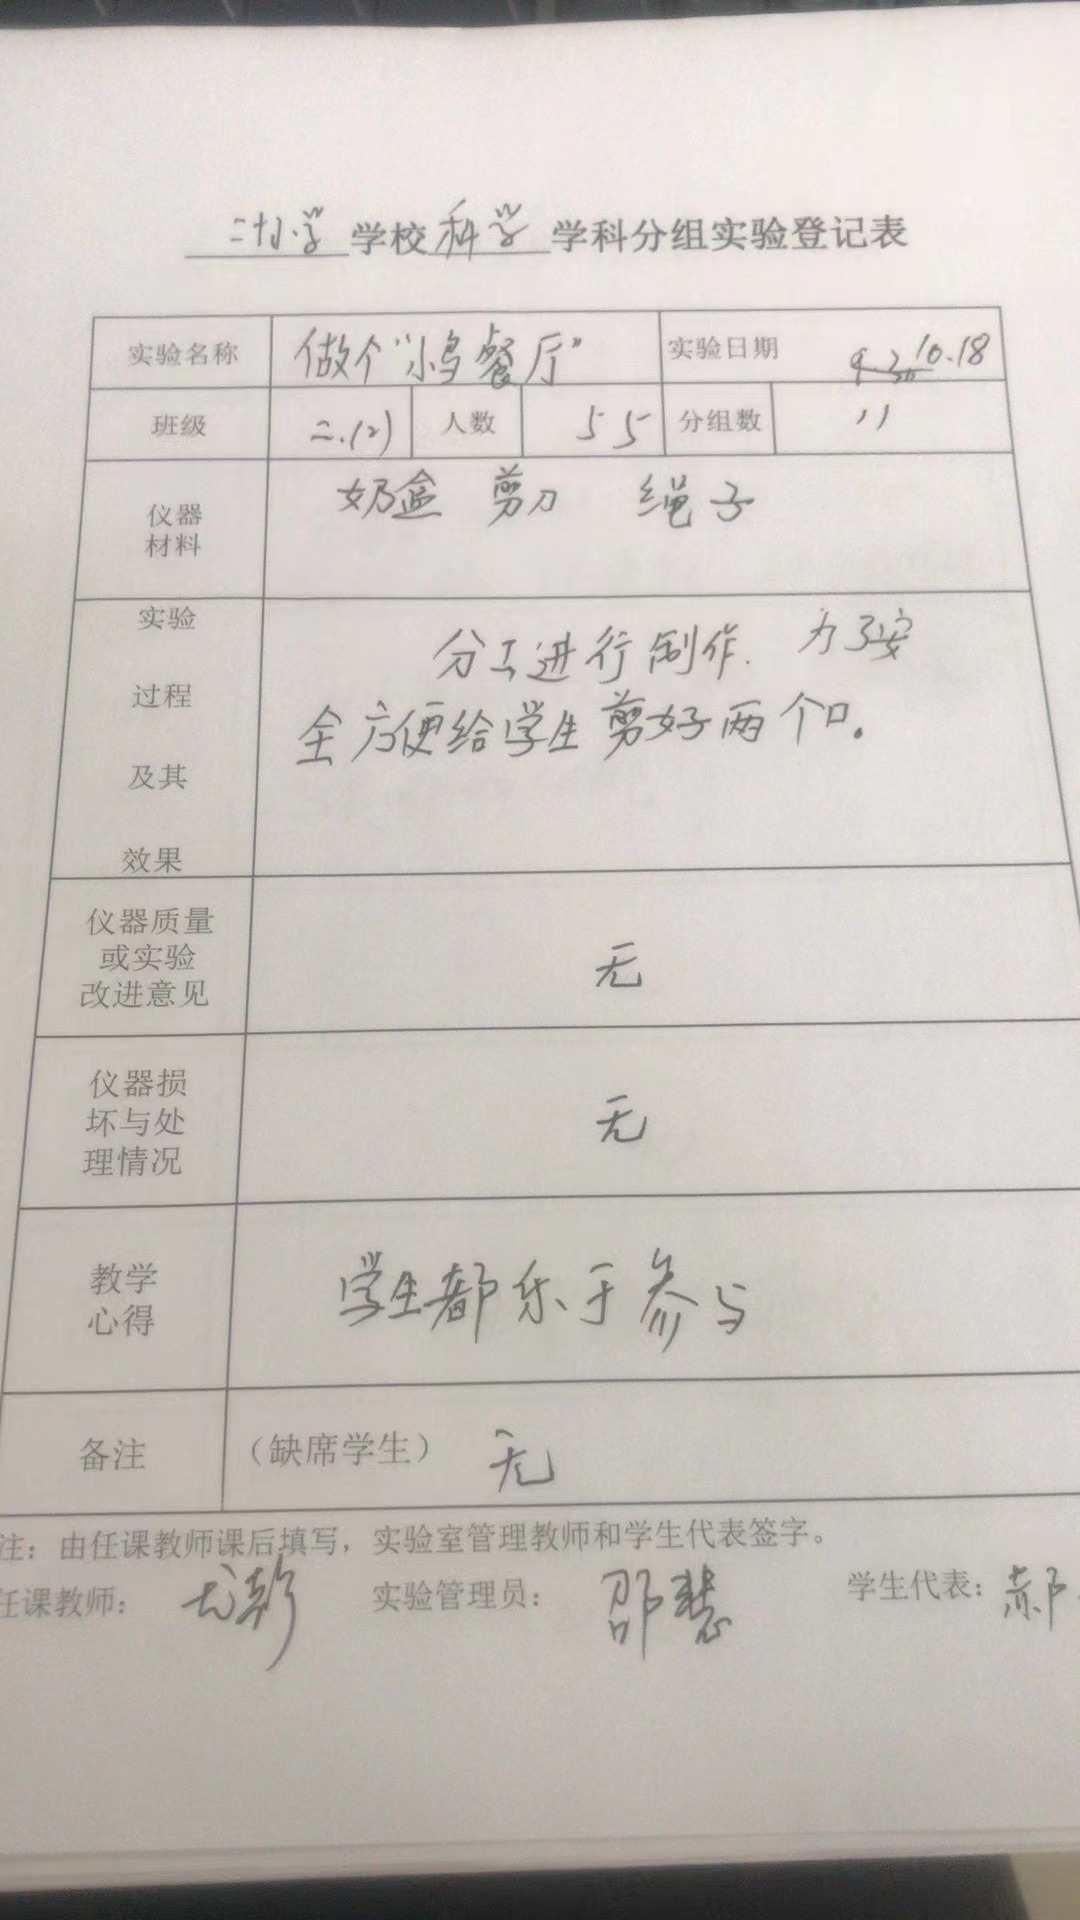 小学 学校 科学 学科分组实验登记表
实验名称 做个“小鸟餐厅” 实验日期 10.18
班级 二.(2) 人数 55 分组数 11
仪器材料 奶盒 剪刀 绳子
实验过程及其效果 分工进行制作. 为了安
全方便给学生剪好两个口。
仪器质量
或实验
改进意见
无
仪器损
坏与处
理情况
无
教学
心得
学生都乐于参与
备注 （缺席学生） 无
注：由任课教师课后填写，实验室管理教师和学生代表签字。
任课教师： 实验管理员： 邵慧 学生代表： 郝